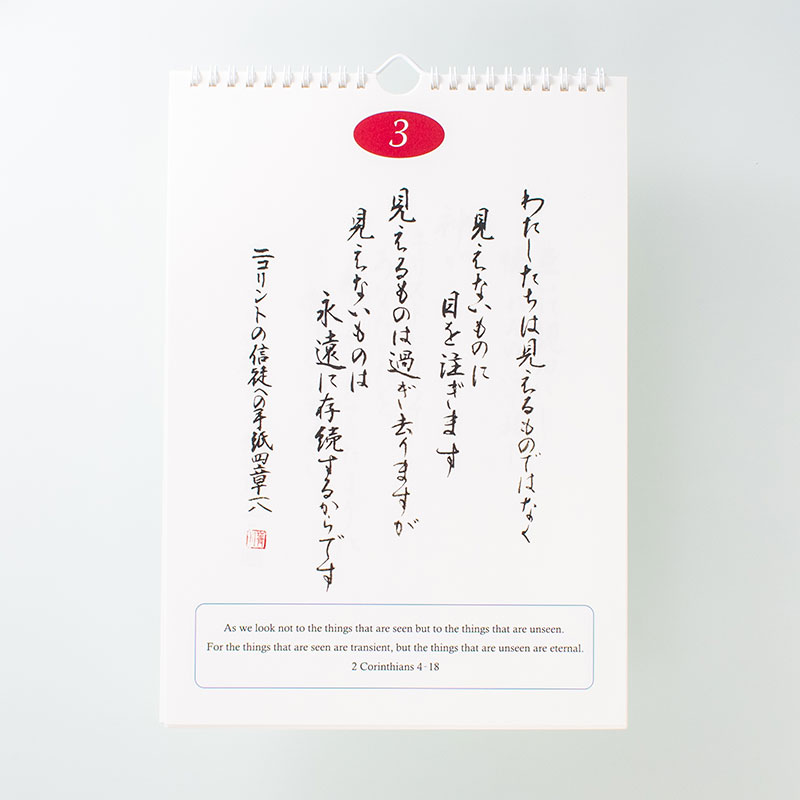 3
わたしたちは見えるものではなく
見えないものに
目を注ぎます
見えるものは過ぎ去りますが
見えないものは
永遠に存続するからです
二コリントの信徒への手紙四章一八
As we look not to the things that are seen but to the things that are unseen.
For the things that are seen are transient, but the things that are unseen are eternal.
2 Corinthians 4-18